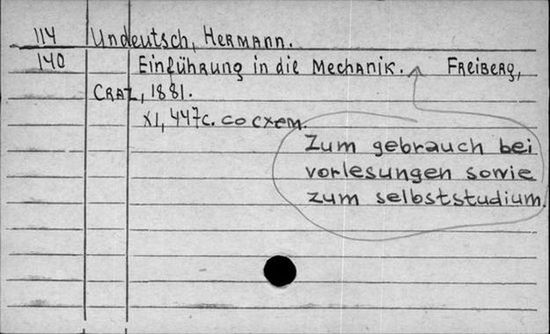 114 Undeutsch, Hermann.
140 Einführung in die Mechanik. Freiberg,
Craz, 1881.
XI, 447с. со схем.
Zum gebrauch bei
vorlesungen sowie
zum selbststudium.